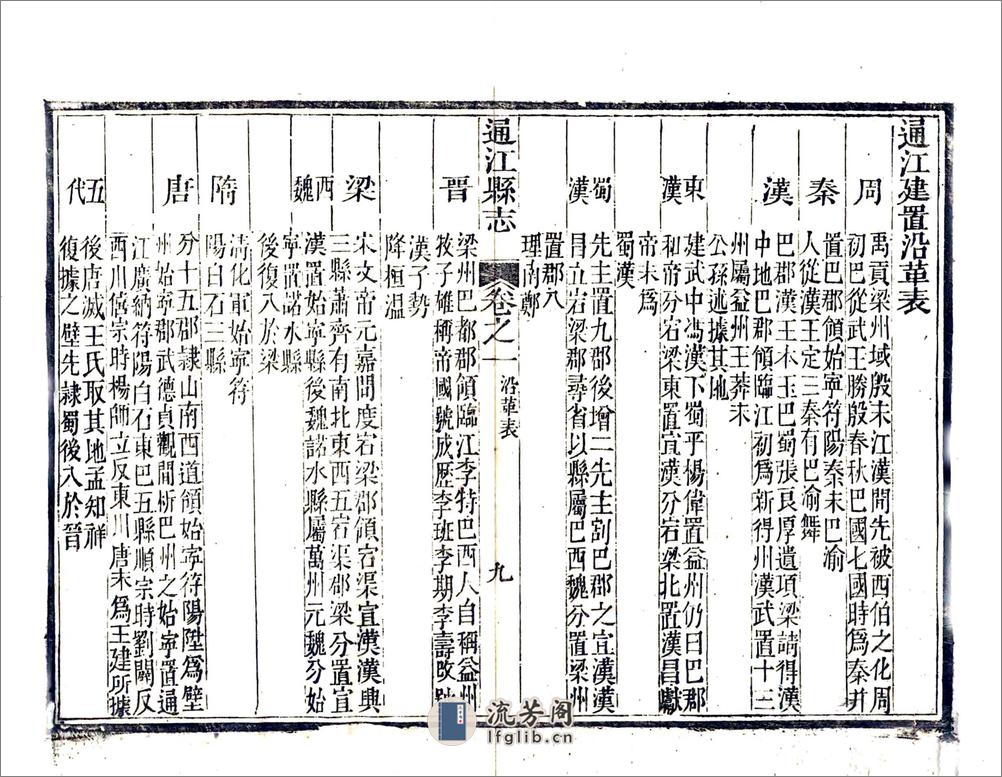 通江建置沿革表
周
禹貢梁州域殷末江漢間先被西伯之化周
初巴從武王勝殷春秋巴國七國時爲秦并
秦
置巴郡領始寧符陽秦末巴渝
人從漢王定三秦有巴渝舞
漢
巴郡漢王本王巴蜀張良厚遺項梁請得漢
中地巴郡領臨江初爲新得州漢武置十三
州屬益州王莽末
公孫述據其地
東漢
建武中馮漢下蜀平楊偉置益州仍曰巴郡
和帝分宕梁東置宣漢分宕梁北置漢昌獻
帝末爲
蜀漢
蜀漢
先主置九郡後增二先主割巴郡之宣漢漢
昌立宕梁郡尋省以縣屬巴西魏分置梁州
置郡八
理南鄭
通江縣志
卷之一
沿革表
九
晉
梁州巴都郡領臨江李特巴西人自稱益州
牧子雄稱帝國號成歷李班李期李壽改
漢子勢
降桓温
梁
宋文帝元嘉間度宕梁郡領宕渠宣漢漢興
三縣蕭齊有南北東西五宕渠郡梁分置宣
西魏
漢置始寧縣後魏諾水縣屬萬州元魏分始
寧置諾水縣
後復入於梁
隋
清化軍始寧符
陽白石三縣
唐
分十五郡隷山南西道領始寧符陽陞爲壁
州始寧郡武德貞觀間析巴州之始寧置通
江廣納符陽白石東巴五縣順宗時劉闢反
西川僖宗時楊師立反東川唐末爲王建所據
五代
後唐滅王氏取其地孟知祥
復據之壁先隷蜀後入於晉
流芳阁
lfglib.cn